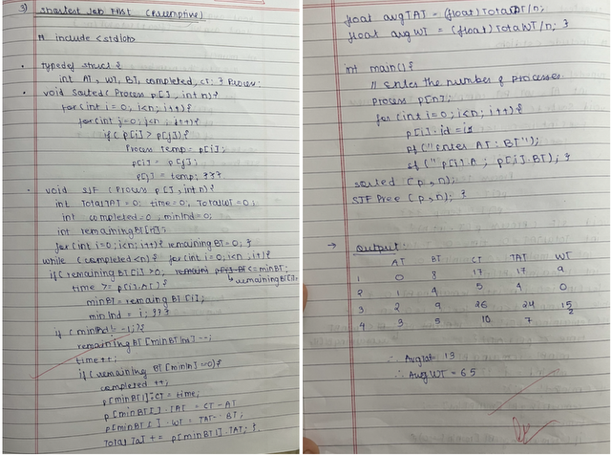 3) Shortest Job First (Preemptive)
# include <stdlo
typedef struct {
int AT, WT, BT, completed, CT; } Process;
void sorted ( Process p[], int n) {
for (int i = 0; i<n; i++) {
for (int j=0; j<n, j++) {
if ( p[i] > p[j]) {
Process temp = p[i];
p[i] = p[j];
p[j] = temp; } } }
void SJF ( Process p[], int n) {
int TotalTAT = 0; time = 0; TotalWT = 0;
int completed = 0, minInd = 0;
int remainingBT[n];
for (int i = 0; i<n; i++) { remainingBT = 0; }
while (completed<n) { for (int i = 0; i<n, i++) {
if (remainingBT[i] > 0, <= minBT;
remainingBT[i],
time >= p[i].AT] {
minBT = remaing BT [i];
min.Ind = i; } } }
if ( minInd != -1; ) {
remainingBT [minBT Ind] --;
time++;
if (remaining BT [minIn] = 0) {
completed ++;
p[minBT[].CT = time;
p[minBT[] . TAT = CT - AT
p[minBT[] . WT = TAT - BT;
Total TaT += p[minBT].TAT; }
float avgTAT = (float) TotalTAT/n;
float avgWT = (float) TotalWT/n; }
int main() {
// Enter the number of processes
Process p[n];
for (int i = 0; i<n; i++) {
p[i].id = i;
pf ("enter AT : BT");
sf (" p[i].A ; p[i].BT); }
sorted ( p, n);
SJF Pree ( p, n); }
→ Output
AT BT CT TAT WT
1 0 8 17 17 9
2 1 4 5 4 0
3 2 9 26 24 15
4 3 5 10 7 2
∴ Avgtat 13
∴ Avg WT = 65